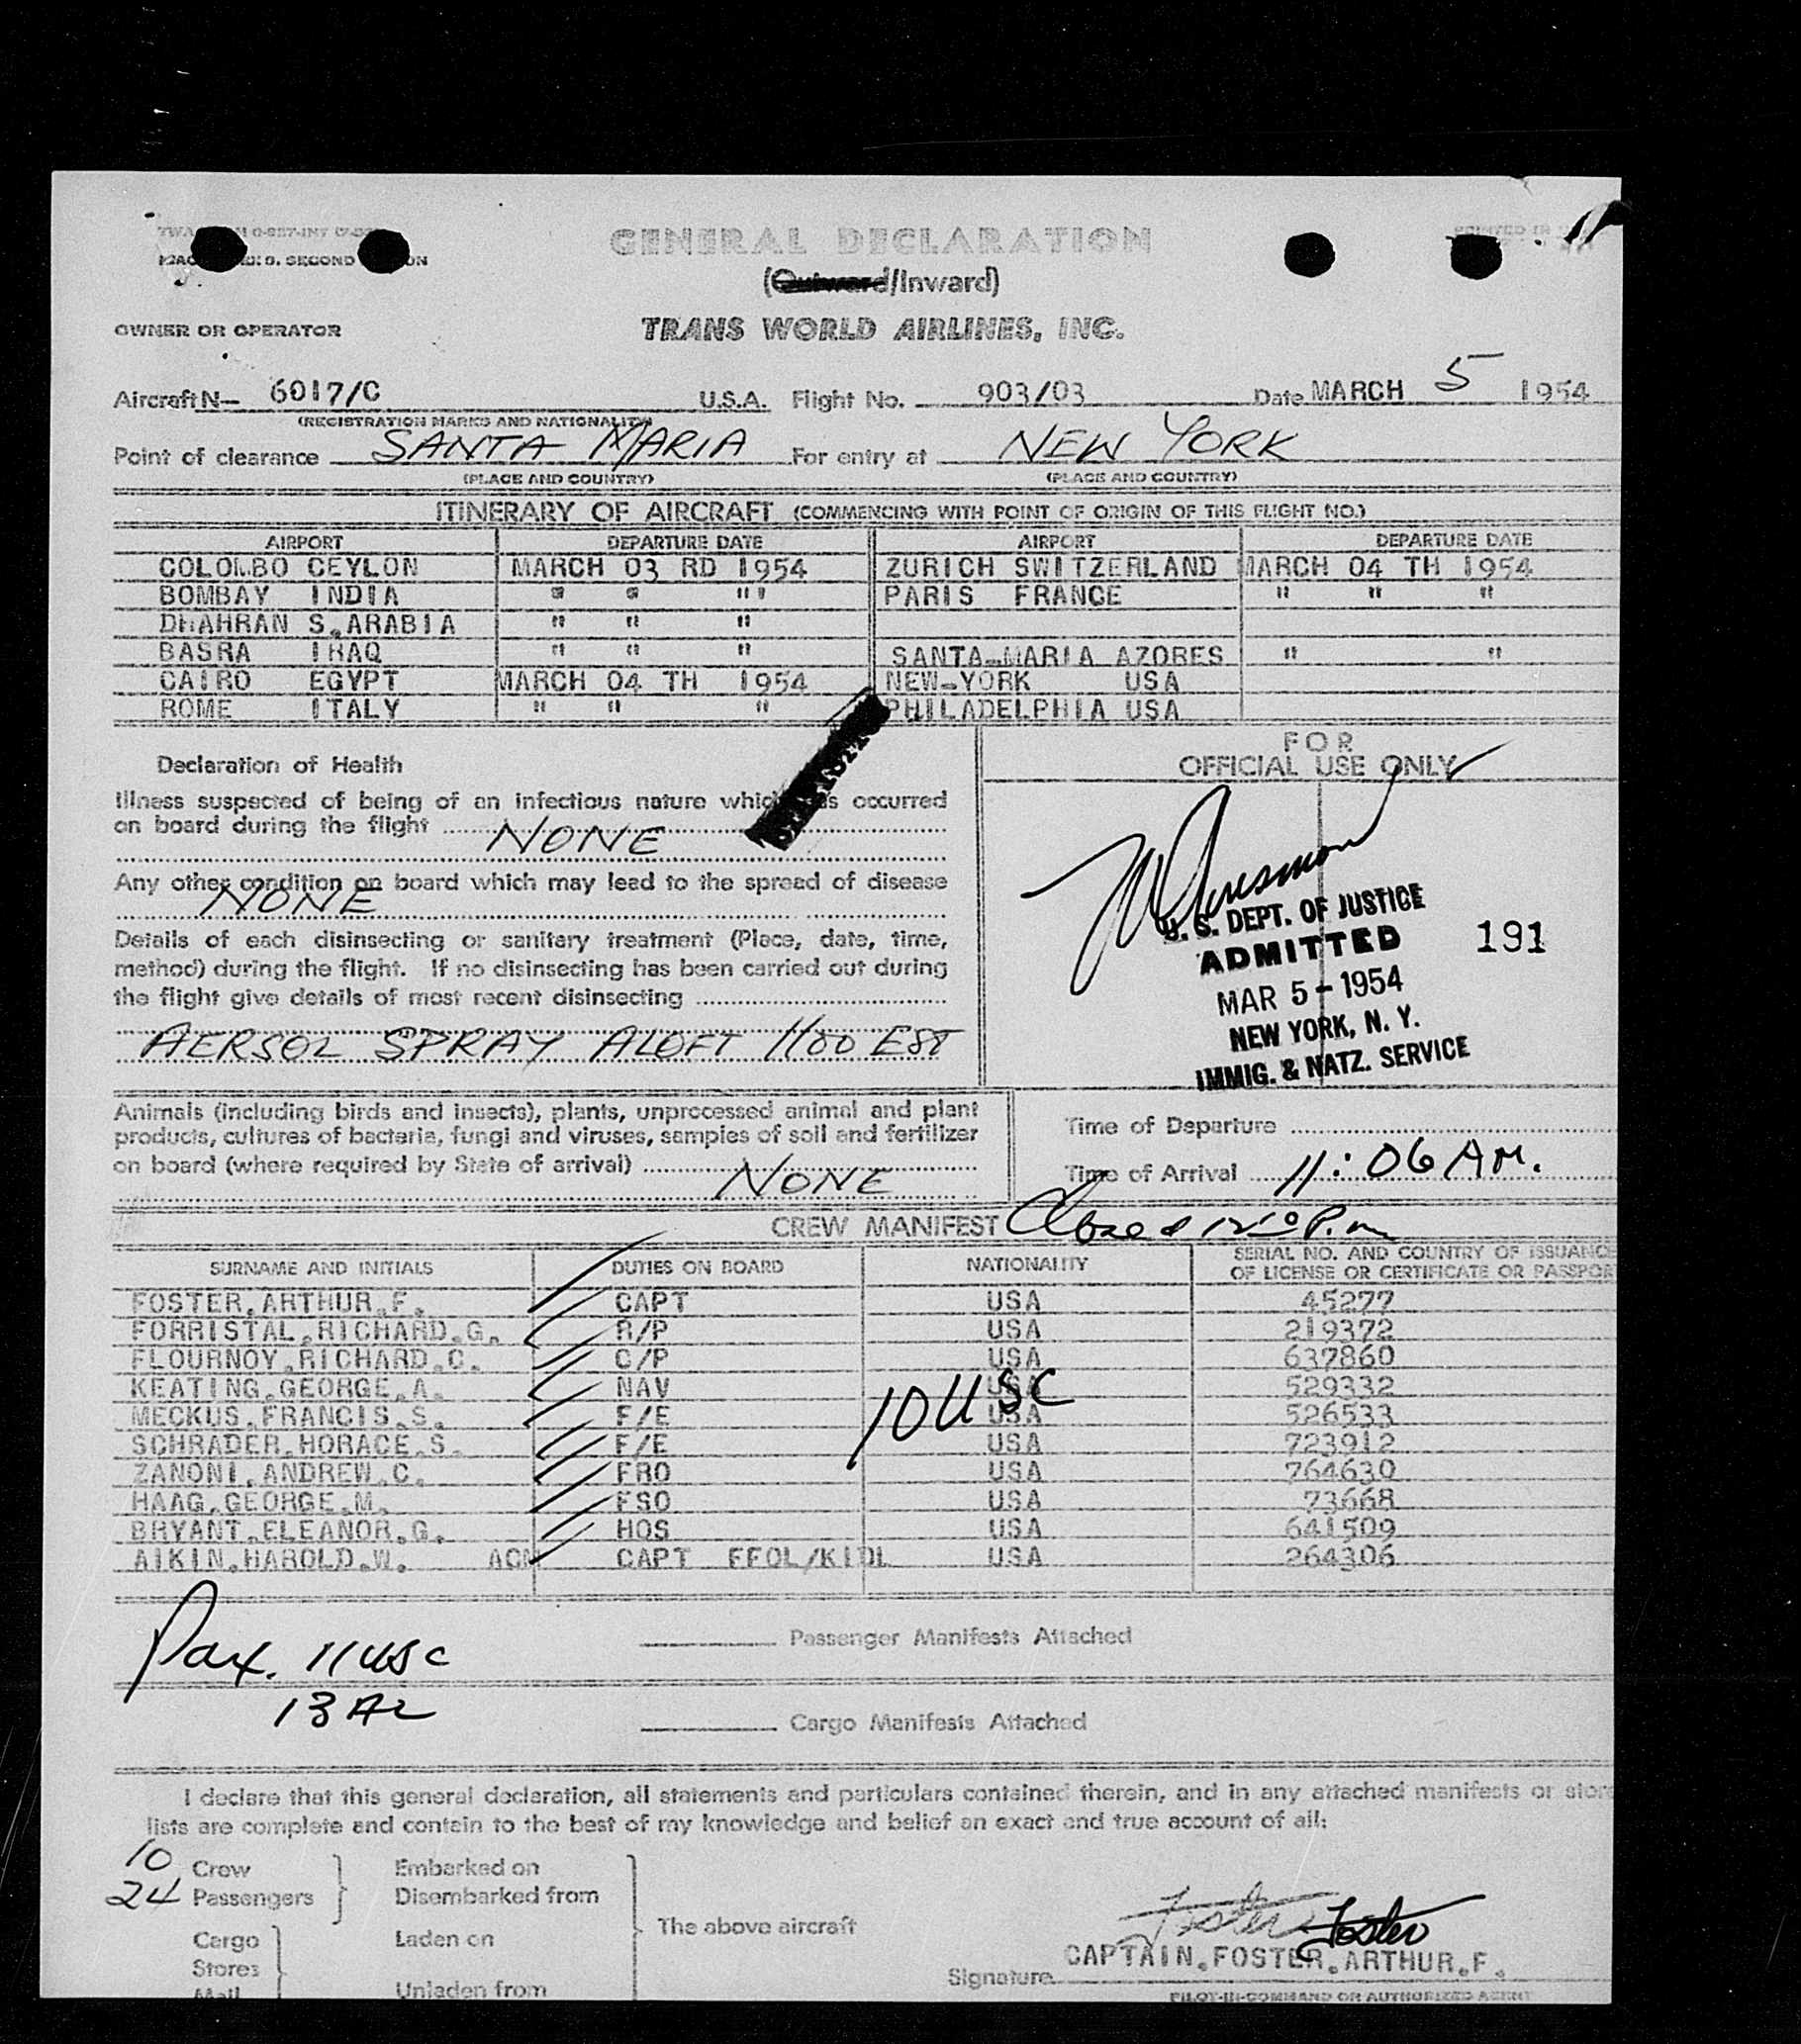 GENERAL DECLARATION
(Outward/Inward)
OWNER OR OPERATOR TRANS WORLD AIRLINES, INC.
Aircraft N— 6017/C U.S.A. Flight No. 903/03 Date MARCH 5 1954
(REGISTRATION MARKS AND NATIONALITY)
Point of clearance SANTA MARIA For entry at NEW YORK
(PLACE AND COUNTRY) (PLACE AND COUNTRY)
ITINERARY OF AIRCRAFT (COMMENCING WITH POINT OF ORIGIN OF THIS FLIGHT NO.)
AIRPORT DEPARTURE DATE AIRPORT DEPARTURE DATE
COLOMBO CEYLON MARCH 03 RD 1954 ZURICH SWITZERLAND MARCH 04 TH 1954
BOMBAY INDIA " " "" PARIS FRANCE " " "
DHAHRAN S.ARABIA " " "
BASRA IRAQ " " " SANTA-MARIA AZORES " "
CAIRO EGYPT MARCH 04 TH 1954 NEW-YORK USA
ROME ITALY " " " PHILADELPHIA USA
Declaration of Health
Illness suspected of being of an infectious nature which has occurred
on board during the flight NONE
Any other condition on board which may lead to the spread of disease
NONE
Details of each disinsecting or sanitary treatment (Place, date, time,
method) during the flight. If no disinsecting has been carried out during
the flight give details of most recent disinsecting
AERSOL SPRAY ALOFT 1100 EST
FOR
OFFICIAL USE ONLY
U. S. DEPT. OF JUSTICE
ADMITTED 191
MAR 5 - 1954
NEW YORK, N. Y.
IMMIG. & NATZ. SERVICE
Animals (including birds and insects), plants, unprocessed animal and plant
products, cultures of bacteria, fungi and viruses, samples of soil and fertilizer
on board (where required by State of arrival) NONE
Time of Departure
Time of Arrival 11:06 AM.
CREW MANIFEST Closed P.m
SURNAME AND INITIALS DUTIES ON BOARD NATIONALITY SERIAL NO. AND COUNTRY OF ISSUANCE
OF LICENSE OR CERTIFICATE OR PASSPOR
FOSTER.ARTHUR.F. CAPT USA 45277
FORRISTAL.RICHARD.G. R/P USA 219372
FLOURNOY.RICHARD.C. C/P USA 637860
KEATING.GEORGE.A. NAV USA 529332
MECKUS.FRANCIS.S. F/E USA 526533
SCHRADER.HORACE.S. F/E USA 723912
ZANONI.ANDREW.C. FRO USA 764630
HAAG.GEORGE.M. FSO USA 73668
BRYANT.ELEANOR.G. HOS USA 641509
AIKIN.HAROLD.W. ACM CAPT FFOL/KIDL USA 264306
10 USC
Pax. 11 USC
13 AL
Passenger Manifests Attached
Cargo Manifests Attached
I declare that this general declaration, all statements and particulars contained therein, and in any attached manifests or store
lists are complete and contain to the best of my knowledge and belief an exact and true account of all:
10 Crew Embarked on
24 Passengers Disembarked from
The above aircraft
Cargo Laden on
Stores
Mail Unladen from
Foster Foster
CAPTAIN.FOSTER.ARTHUR.F.
Signature
PILOT-IN-COMMAND OR AUTHORIZED AGENT